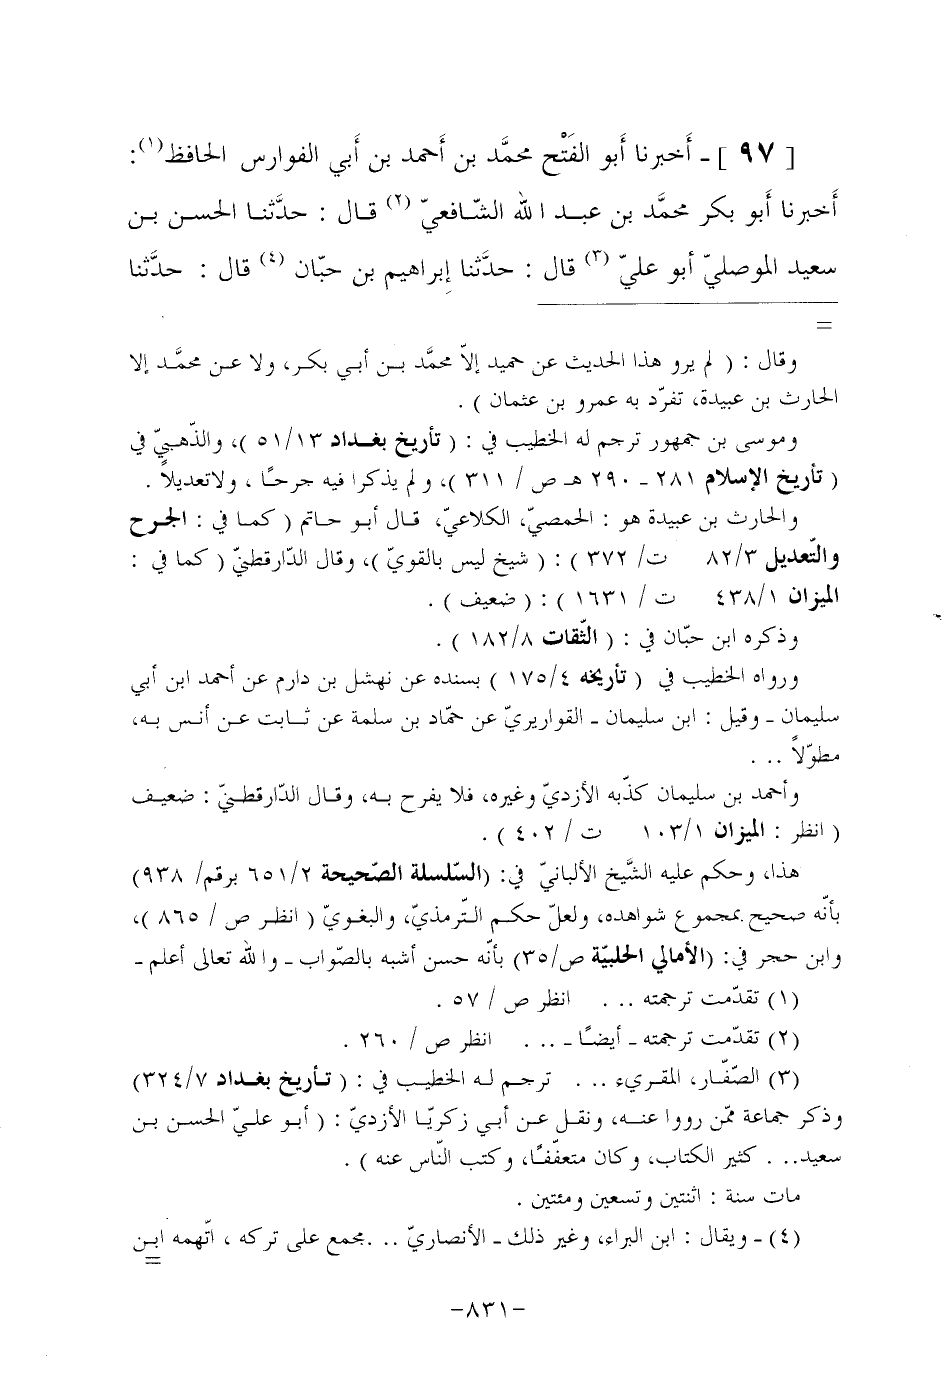 [ ٩٧ ] ـ أَخبرنا أَبو الفَتْح محمَّد بن أَحمد بن أَبي الفوارس الحافظ(١):
أَخبرنا أَبو بكر محمَّد بن عبـد الله الشّافعيّ(٢) قـال : حدَّثنـا الحسـن بـن
سعيد الموصليّ أبو عليّ(٣) قال : حدَّثنا إبراهيم بن حبّان(٤) قال : حدَّثنا
=
وقال : ( لم يرو هذا الحديث عن حميد إلاّ محمَّد بـن أبي بكـر، ولا عـن محمَّـد إلا
الحارث بن عبيدة، تفرّد به عمرو بن عثمان ) .
وموسى بن جمهور ترجم له الخطيب في : ( تأريخ بغـداد ٥١/١٣ )، والذّهبيّ في
( تأريخ الإسلام ٢٨١ ـ ٢٩٠ هـ ص / ٣١١ )، و لم يذكرا فيه جرحًـا ، ولاتعديلاً .
والحارث بن عبيدة هو : الحمصيّ، الكلاعيّ، قـال أبـو حـاتم ( كمـا في : الجـرح
والتّعديل ٨٢/٣ ت/ ٣٧٢ ) : ( شيخ ليس بالقويّ )، وقال الدّارقطنيّ ( كما في :
الميزان ٤٣٨/١ ت / ١٦٣١ ) : ( ضعيف ) .
وذكره ابن حبّان في : ( الثّقات ١٨٢/٨ ) .
ورواه الخطيب في ( تأريخه ١٧٥/٤ ) بسنده عن نهشل بن دارم عن أحمد ابن أبي
سليمان ـ وقيل : ابن سليمان ـ القواريريّ عن حمّاد بن سلمة عن ثـابت عـن أنـس بـه،
مطوّلاً ...
وأحمد بن سليمان كذّبه الأزديّ وغيره، فلا يفرح بـه، وقـال الدّارقطـنيّ : ضعيـف
( انظر : الميزان ١٠٣/١ ت / ٤٠٢ ) .
هذا، وحكم عليه الشَّيخ الألبانيّ في: (السّلسلة الصّحيحة ٦٥١/٢ برقم/ ٩٣٨)
بأنّه صحيح بمجموع شواهده، ولعلّ حكـم التّرمذيّ، والبغـويّ ( انظـر ص / ٨٦٥ )،
وابن حجر في: (الأمالي الحلبيّة ص/٣٥) بأنّه حسن أشبه بالصّواب ـ والله تعالى أعلم ـ
(١) تقدّمت ترجمته ... انظر ص / ٥٧ .
(٢) تقدّمت ترجمته ـ أيضًـا ـ ... انظر ص / ٢٦٠ .
(٣) الصّفّـار، المقريء ... ترجـم لـه الخطيـب في : ( تـأريخ بغـداد ٣٢٤/٧)
وذكر جماعة ممّن رووا عنـه، ونقـل عـن أبـي زكريّـا الأزديّ : ( أبـو علـيّ الحسـن بـن
سعيد... كثير الكتاب، وكان متعفّفًـا، وكتب النّاس عنه ) .
مات سنة : اثنتين وتسعين ومئتين .
(٤) ـ ويقال : ابن البراء، وغير ذلك ـ الأنصاريّ ... مجمع على تركه ، اتّهمه ابـن
=
-٨٣١-